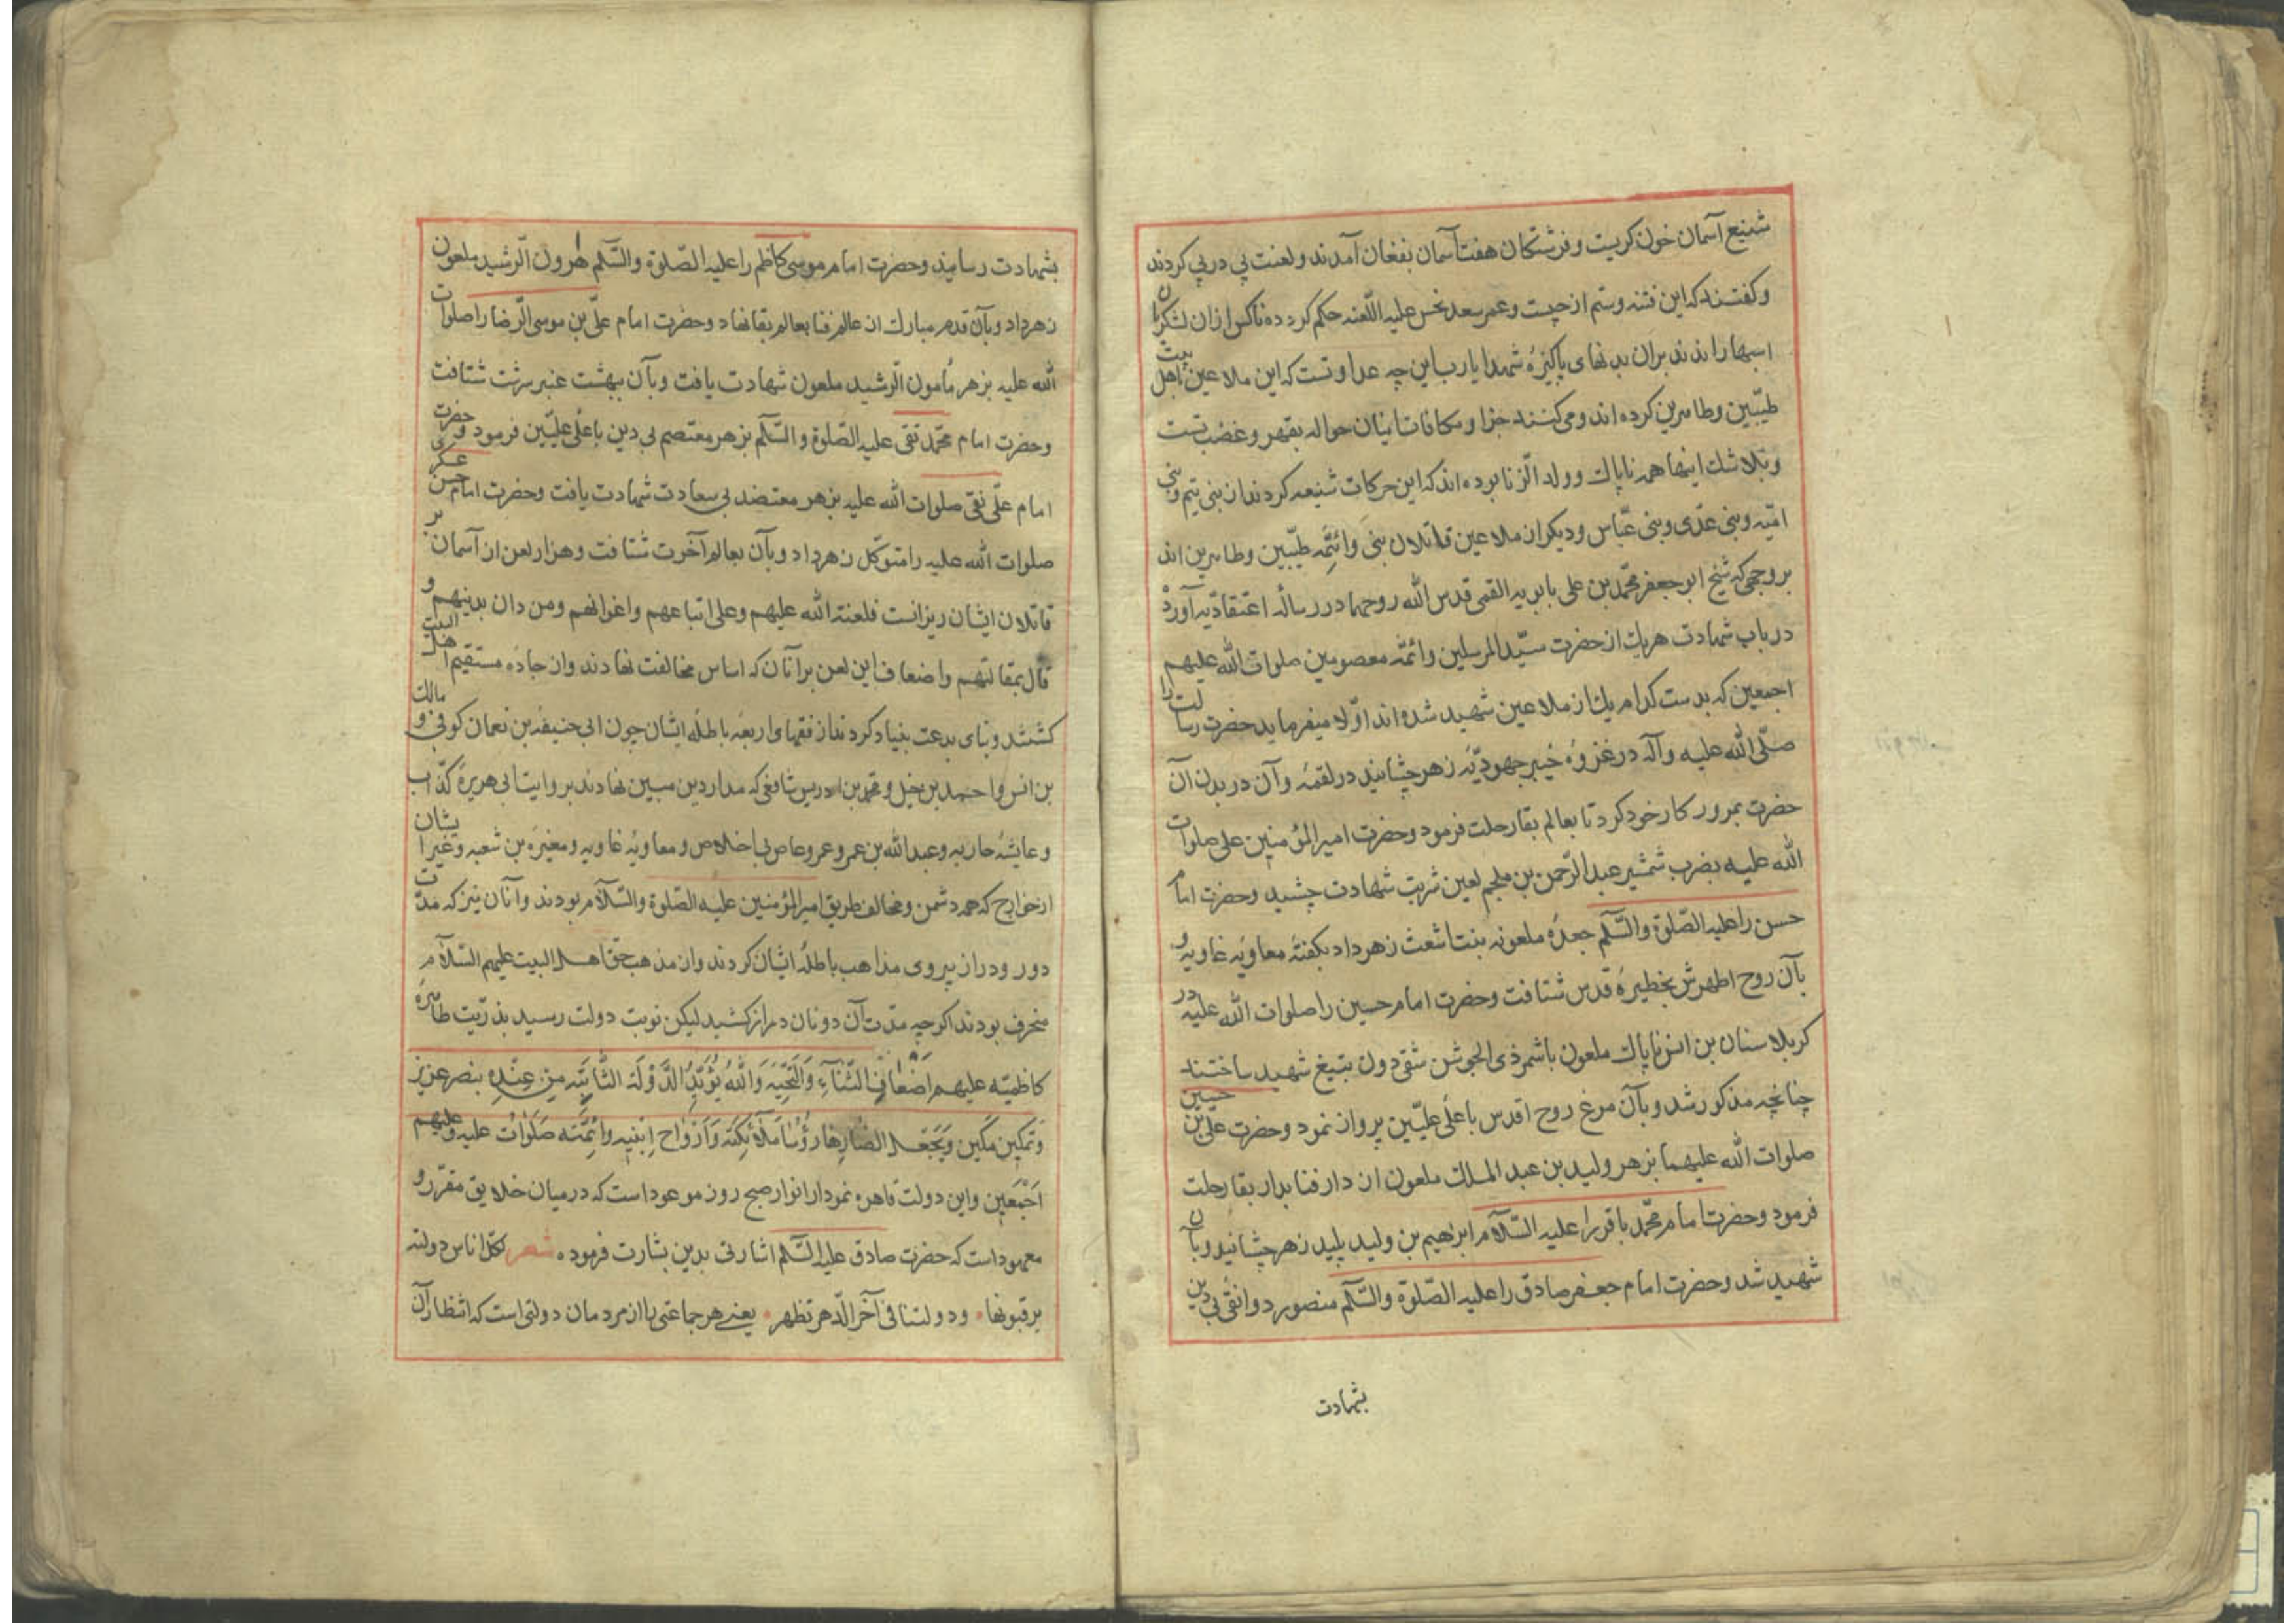 شنیع آسمان خون کریست و فرشتکان هفت آسمان بفغان آمدند و لعنت پی در پی کردند
و کفتند که این فتنه و ستم از چیست و عمر سعد نحس علیه اللّعنه حکم کرد ده ناکس را از آن لشکریان
اسبها راندند بر آن بدنهای پاکیزهٔ شهدا یا رب این چه عداوتست که این ملاعین باهل بیت
طیّبین و طاهرین کرده اند و می کنند جزا و مکافات اینان حواله بقهر و غضب تست
و بلا شک اینها همه ناپاک و ولد الزّنا بوده اند که این حرکات شنیعه کردند از بنی تیم و بنی
امیّه و بنی عدّی و بنی عبّاس و دیکر از ملاعین قاتلان بنی و ائمّه طیّبین و طاهرین اند
بر وجهی که شیخ ابو جعفر محمّد بن علی بابویه القمی قدس الله روحهما در رسالهٔ اعتقادیّه آورده
در باب شهادت هر یک از حضرت سیّد المرسلین و ائمّه معصومین صلوات الله علیهم
اجمعین که بدست کدام یک از ملاعین شهید شده اند اوّلا میفرماید حضرت رسالت را
صلّی الله علیه و آله در غزوهٔ خیبر جهودیّه زهر چشانید در لقمهٔ و آن در بدن آن
حضرت بمرور کار خود کرد تا بعالم بقا رحلت فرمود و حضرت امیر المؤمنین علی صلوات
الله علیه بضرب شمشیر عبد الرّحمن بن ملجم لعین شربت شهادت چشید و حضرت امام
حسن را علیه الصّلوة والسّلم جعدهٔ ملعونه بنت اشعث زهر داد بکفتهٔ معاویهٔ غاویه و
بآن روح اطهرش بخطیرهٔ قدس شتافت و حضرت امام حسین را صلوات الله علیه در
کربلا سنان بن انس ناپاک ملعون با شمر ذی الجوشن شقی دون بتیغ شهید ساختند
چنانچه مذکور شد و بآن مرغ روح اقدس باعلی علیّین پرواز نمود و حضرت علی بن حسین
صلوات الله علیهما بزهر ولید بن عبد الملک ملعون از دار فنا بدار بقا رحلت
فرمود و حضرت امام محمّد باقر را علیه السّلام ابرهیم بن ولید پلید زهر چشانید و بآن
شهید شد و حضرت امام جعفر صادق را علیه الصّلوة والسّلم منصور دوانقی بی دین
بشهادت
بشهادت رسانید و حضرت امام موسی کاظم را علیه الصّلوة والسّلم هرون الرّشید ملعون
زهر داد و بآن قدم مبارک از عالم فنا بعالم بقا نهاد و حضرت امام علّی بن موسی الرّضا را صلوات
الله علیه بزهر مأمون الرّشید ملعون شهادت یافت و بآن ببهشت عنبر سرشت شتافت
و حضرت امام محمّد تقی علیه الصّلوة والسّلم بزهر معتصم بی دین باعلی علیّین فرمود و حضرت
امام علّی نقی صلوات الله علیه بزهر معتضد بی سعادت شهادت یافت و حضرت امام حسن عسکری
صلوات الله علیه را متوکّل زهر داد و بآن بعالم آخرت شتافت و هزار لعن از آسمان بر
قاتلان ایشان ریزانست فلعنة الله علیهم وعلی اتباعهم واغوانهم ومن دان بدینهم و
قال بمقالتهم واضعاف این لعن بر آنان که اساس مخالفت نهادند و از جادهٔ مستقیم اهل البیت
کشتند و بنای بدعت بنیاد کردند از فقهای اربعهٔ باطلهٔ ایشان چون ابی حنیفه بن نعمان کوفی و مالک
بن انس و احمد بن حنبل و محمّد بن ادریس شافعی که مدار دین مبین نهادند بر روایت ابی هریرهٔ کذّاب
و عایشهٔ حاربه و عبد الله بن عمر و عمرو عاص بی اخلاص و معاویهٔ غاویه و مغیره بن شعبه و غیر ایشان
از خوارج که همه دشمن و مخالف طریق امیر المؤمنین علیه الصّلوة والسّلام بودند و آنان نیز که مدّت
دور و دراز پیروی مذاهب باطلهٔ ایشان کردند و از مذهب حق اهل البیت علیهم السّلام
منحرف بودند اکر چه مدّت آن دونان دراز کشید لیکن نوبت دولت رسید بذرّیت طاهرهٔ
کاظمیّه علیهم اضعاف الثّناء والتّحیّه والله یؤیّد الدّولة الثّابته من عنده بنصر عزیز
وتمکین مکین ویجعل انصارها رؤسا ملائکته وارواح ابنیه وائمّته صلوات علیه وعلیهم
اجمعین و این دولت قاهره نمودار انوار صبح روز موعود است که در میان خلایق مقرّر و
معهود است که حضرت صادق علیه السّلم اشارتی بدین بشارت فرموده شعر لکلّ اناس دولته
یرقبونها ٠ ودولتنا فی آخر الدّهر تظهر ٠ یعنی هر جماعتی را از مردمان دولتی است که انتظار آن